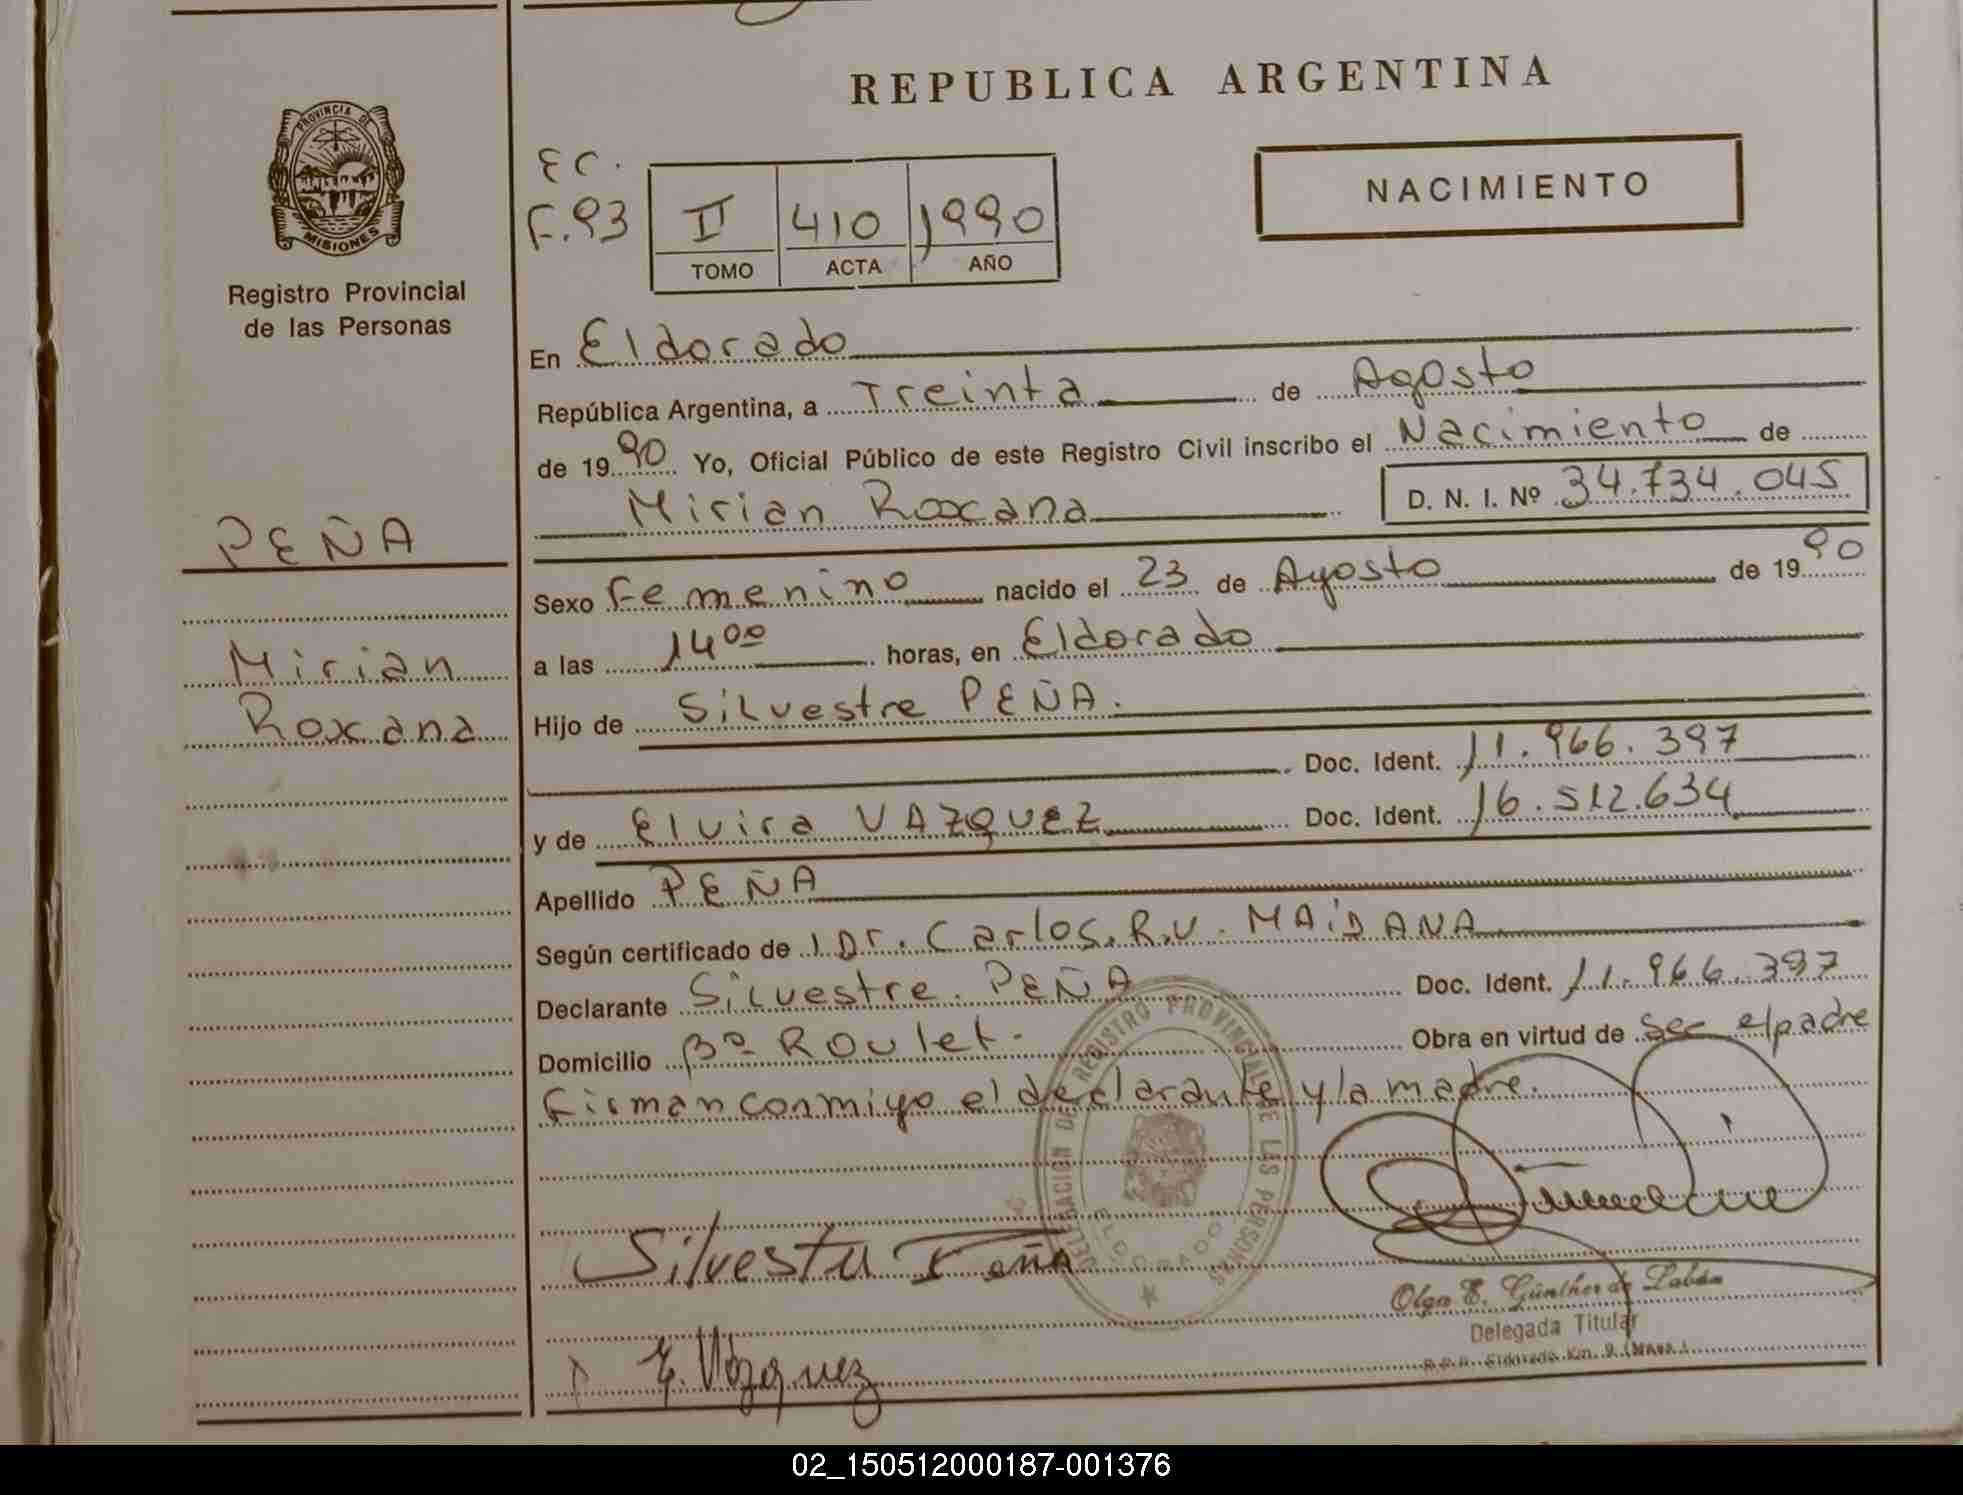 REPUBLICA ARGENTINA
PROVINCIA DE
MISIONES
Registro Provincial
de las Personas
EC.
F.93
II 410 1990
TOMO ACTA AÑO
NACIMIENTO
En Eldorado
República Argentina, a Treinta de Agosto
de 1990 Yo, Oficial Público de este Registro Civil inscribo el Nacimiento de
Mirian Roxana D. N. I. Nº 34.734.045
PEÑA
Mirian
Roxana
Sexo Femenino nacido el 23 de Agosto de 1990
a las 14 00 horas, en Eldorado
Hijo de Silvestre PEÑA.
Doc. Ident. 11.966.397
y de Elvira VAZQUEZ Doc. Ident. 16.512.634
Apellido PEÑA
Según certificado de Dr. Carlos. R.V. MAiDANA
Declarante Silvestre. PEÑA Doc. Ident. 11.966.397
Domicilio Bº ROulet. Obra en virtud de ser el padre
Firman conmigo el declarante y la madre.
DELEGACION DE REGISTRO PROVINCIAL DE LAS PERSONAS
ELDORADO
Silvestre Peña
Olga E. Günther de Labán
Delegada Titular
R.P.P. Eldorado Km. 9 (Mnes.)
E. Vázquez
02_150512000187-001376